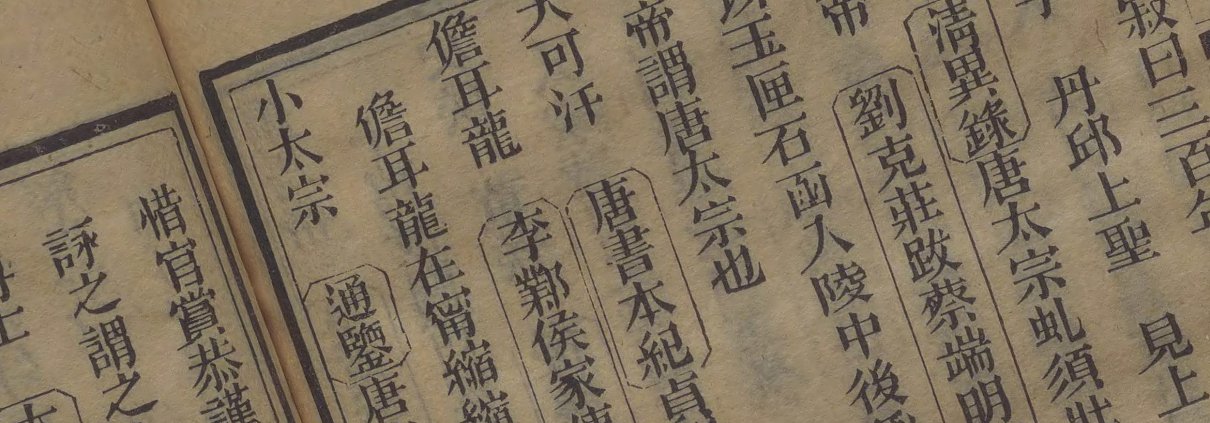 叙曰三百年
丹邱上聖　見上
清異錄唐太宗虬須壯
帝　劉克莊跋蔡端明
玉匣石函入陵中後
帝謂唐太宗也
大可汗　唐書本紀貞
儋耳龍　李鄴侯家傳
儋耳龍在甯縮縮
小太宗　通鑒唐
惜官賞恭謹
詠之謂之